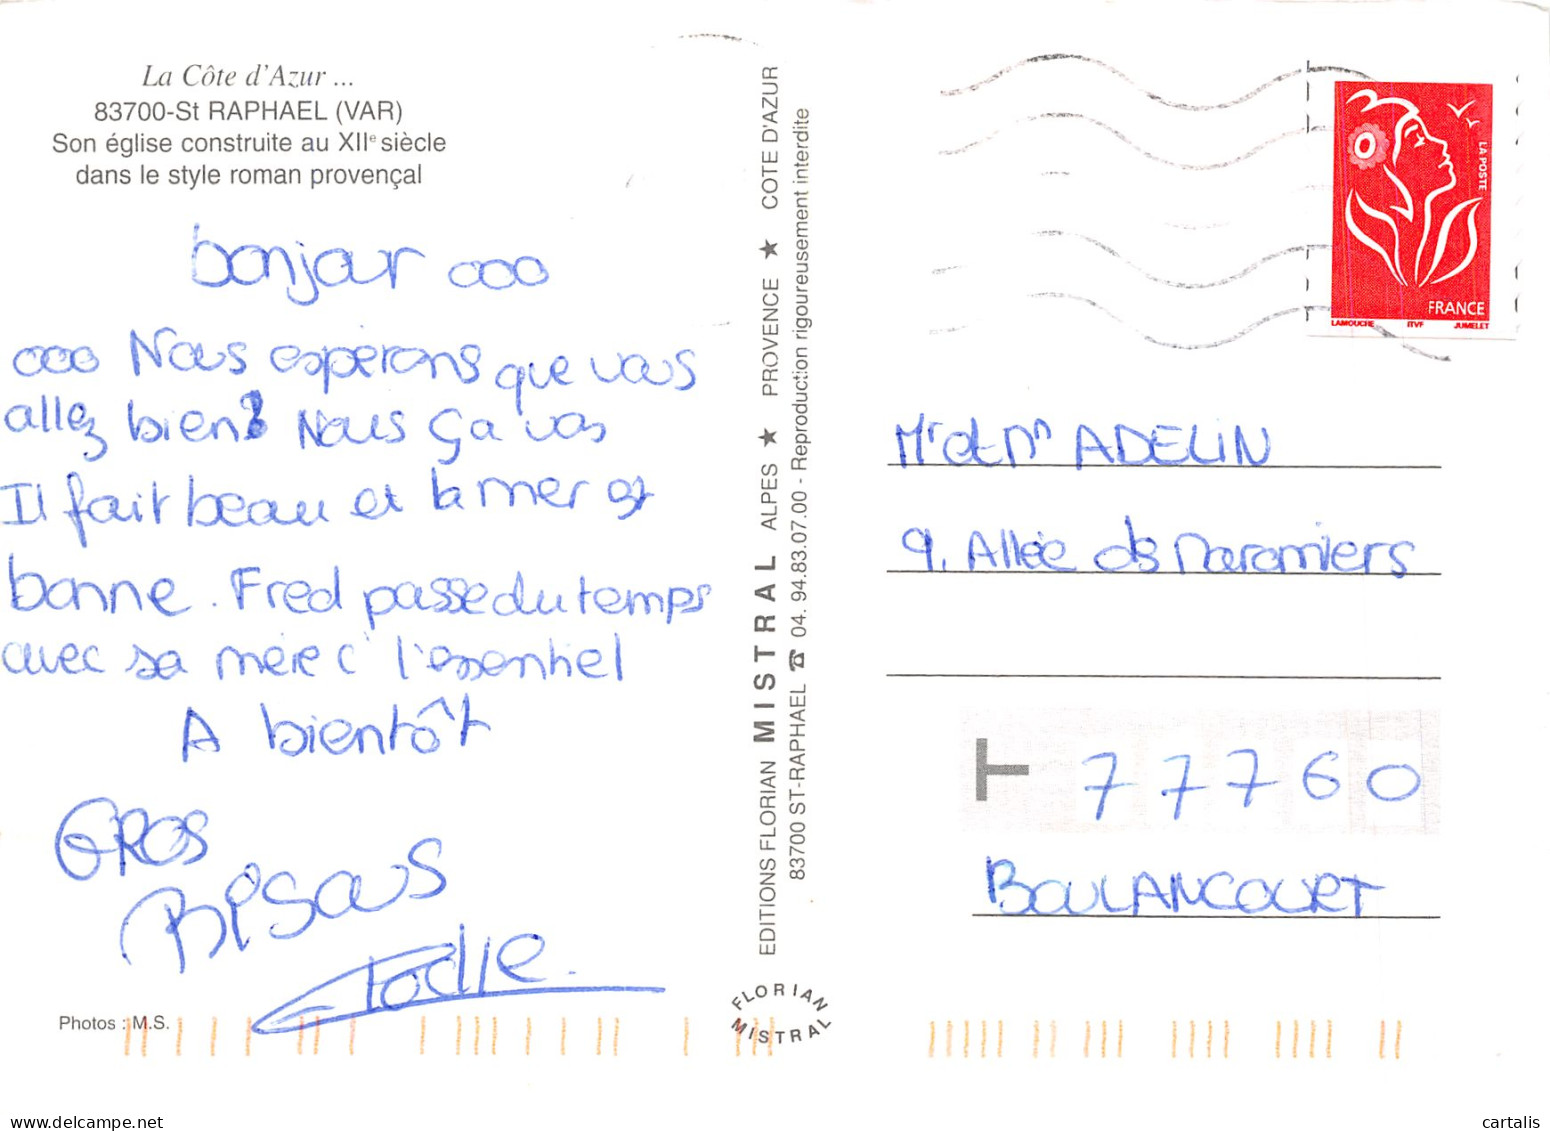 La Côte d'Azur ...
83700-St RAPHAEL (VAR)
Son église construite au XIIe siècle
dans le style roman provençal
bonjour ooo
ooo Nous espérons que vous
allez bien? Nous ça vas
Il fait beau et la mer est
bonne. Fred passe du temps
avec sa mère c' l'essentiel
A bientôt
GROS
BISOUS
Elodie.
Photos : M.S.
EDITIONS FLORIAN MISTRAL ALPES ★ PROVENCE ★ COTE D'AZUR
83700 ST-RAPHAEL ☎ 04. 94.83.07.00 - Reproduction rigoureusement interdite
FLORIAN
MISTRAL
LA POSTE
FRANCE
LAMOUCHE ITVF JUMELET
Mr et Mm ADELIN
9, Allée des Maromiers
77760
BOULANCOURT
cartalis